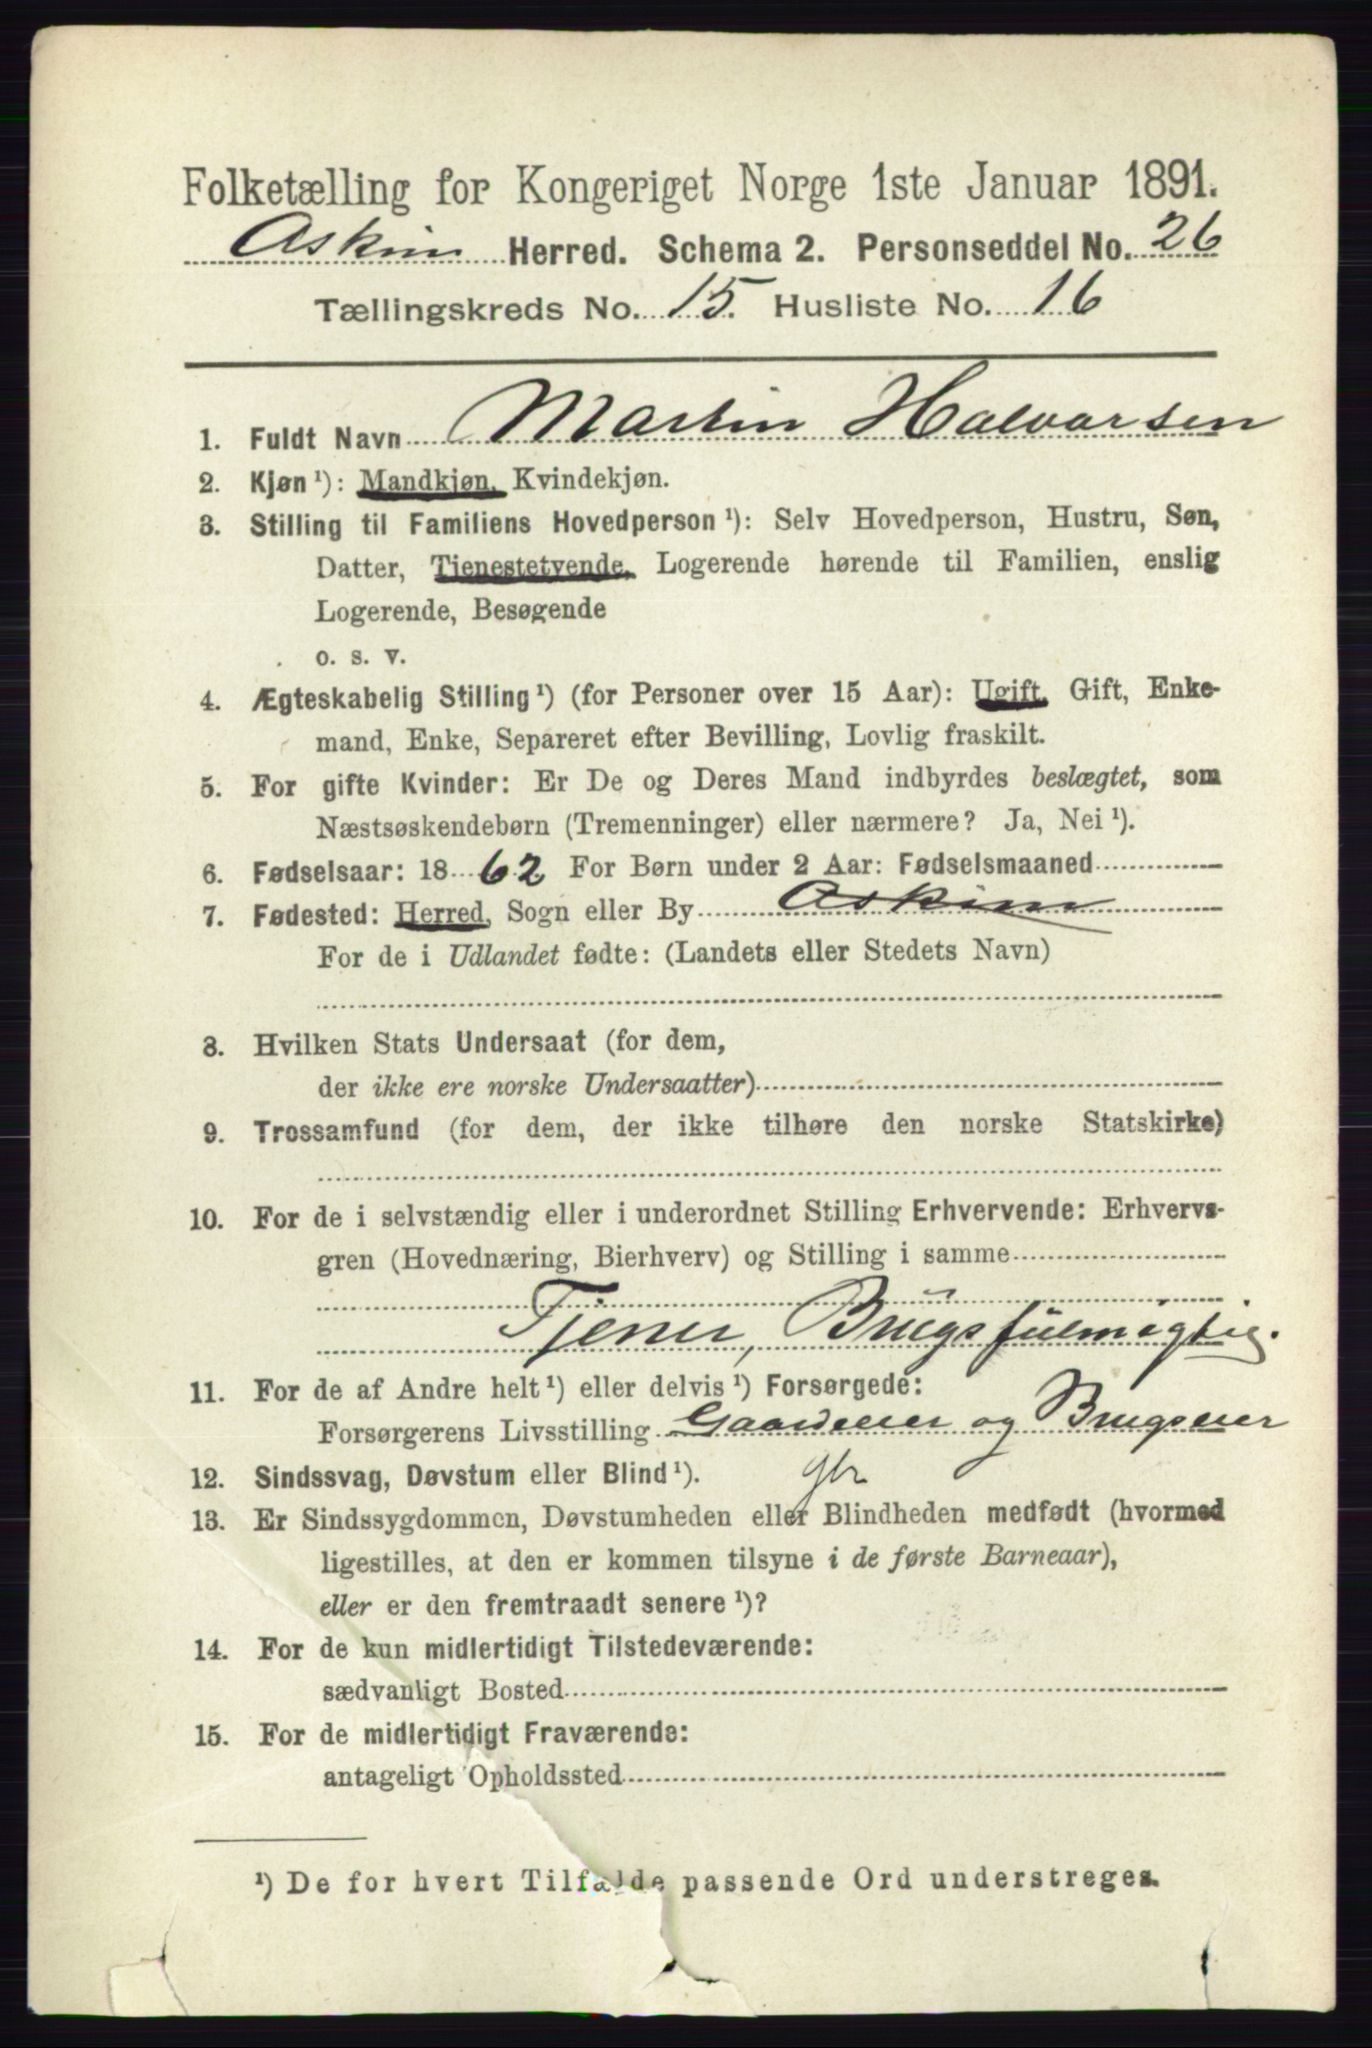 Folketælling for Kongeriget Norge 1ste Januar 1891.
Askim Herred. Schema 2. Personseddel No. 26
Tællingskreds No. 15. Husliste No. 16
1. Fuldt Navn Martin Halvorsen
2. Kjøn ¹): Mandkjøn, Kvindekjøn.
3. Stilling til Familiens Hovedperson ¹): Selv Hovedperson, Hustru, Søn,
Datter, Tjenestetyende, Logerende hørende til Familien, enslig
Logerende, Besøgende
o. s. v.
4. Ægteskabelig Stilling ¹) (for Personer over 15 Aar): Ugift, Gift, Enke-
mand, Enke, Separeret efter Bevilling, Lovlig fraskilt.
5. For gifte Kvinder: Er De og Deres Mand indbyrdes beslægtet, som
Næstsøskendebørn (Tremenninger) eller nærmere? Ja, Nei ¹).
6. Fødselsaar: 1862 For Børn under 2 Aar: Fødselsmaaned
7. Fødested: Herred, Sogn eller By Askim
For de i Udlandet fødte: (Landets eller Stedets Navn)
8. Hvilken Stats Undersaat (for dem,
der ikke ere norske Undersaatter)
9. Trossamfund (for dem, der ikke tilhøre den norske Statskirke)
10. For de i selvstændig eller i underordnet Stilling Erhvervende: Erhvervs-
gren (Hovednæring, Bierhverv) og Stilling i samme
Tjener, Brugsfulmægtig.
11. For de af Andre helt ¹) eller delvis ¹) Forsørgede:
Forsørgerens Livsstilling Gaardeier og Brugseier
12. Sindssvag, Døvstum eller Blind ¹).
13. Er Sindssygdommen, Døvstumheden eller Blindheden medfødt (hvormed
ligestilles, at den er kommen tilsyne i de første Barneaar),
eller er den fremtraadt senere ¹)?
14. For de kun midlertidigt Tilstedeværende:
sædvanligt Bosted
15. For de midlertidigt Fraværende:
antageligt Opholdssted
¹) De for hvert Tilfælde passende Ord understreges.